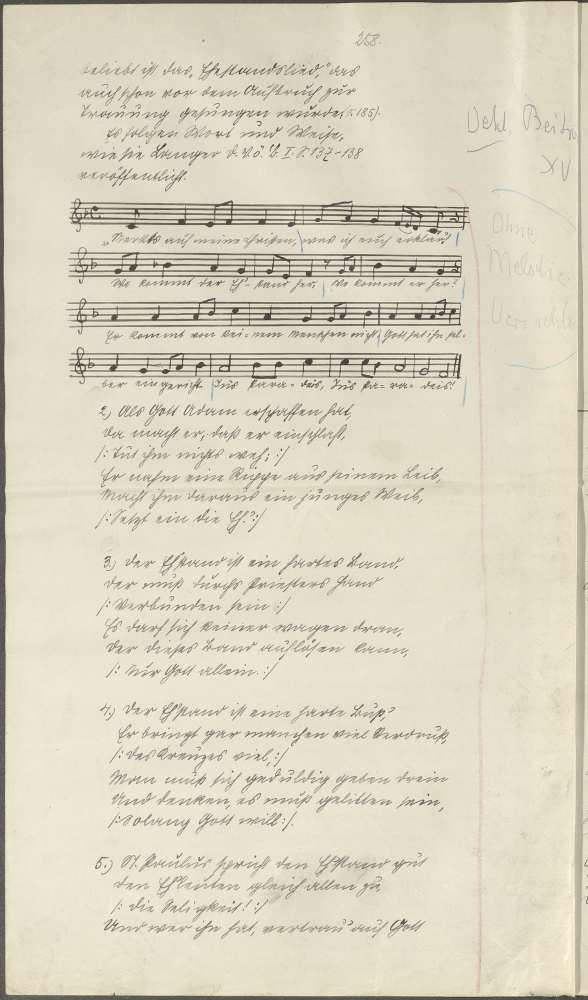 258.
beliebt ist das „Ehestandslied,“ das
auch schon vor dem Aufbruch zur
Trauung gesungen wurde (S. 185).
Es folgen Wort und Weise,
wie sie Langer d. V. ö. B. I. S. 137-138
veröffentlicht.
„Merkts auf meine Christen, was ich euch erklär!
Wo kommt der Eh'-stand her, wo kommt er her?
Er kommt von kei-nem Menschen nicht, Gott hat ihn sel-
ber eingericht Ins Para-deis, Ins Pa-ra-deis!
2.) Als Gott Adam erschaffen hat,
Da macht er, daß er einschlaft,
/: Tut ihm nichts weh; :/
Er nahm eine Rippe aus seinem Leib,
Macht ihm daraus ein junges Weib,
/: Setzt ein die Eh'. :/
3.) Der Ehstand ist ein hartes Band,
Der muß durchs Priesters Hand
/: Verbunden sein :/
Es darf sich keiner wagen dran,
Der dieses Band auflösen kann,
/: Nur Gott allein. :/
4.) Der Ehstand ist eine harte Buß',
Er bringt gar manchen viel Verdruß,
/: Des Kreuzes viel, :/
Man muß sich geduldig geben drein
Und denken, es muß gelitten sein,
/: Solang Gott will :/.
5.) St. Paulus spricht den Ehstand gut
Den Ehleuten gleich allen zu
/: Die Seligkeit! :/
Und wer ihn hat, vertrau' auf Gott
Beitr
XV
Ohne
Melodie